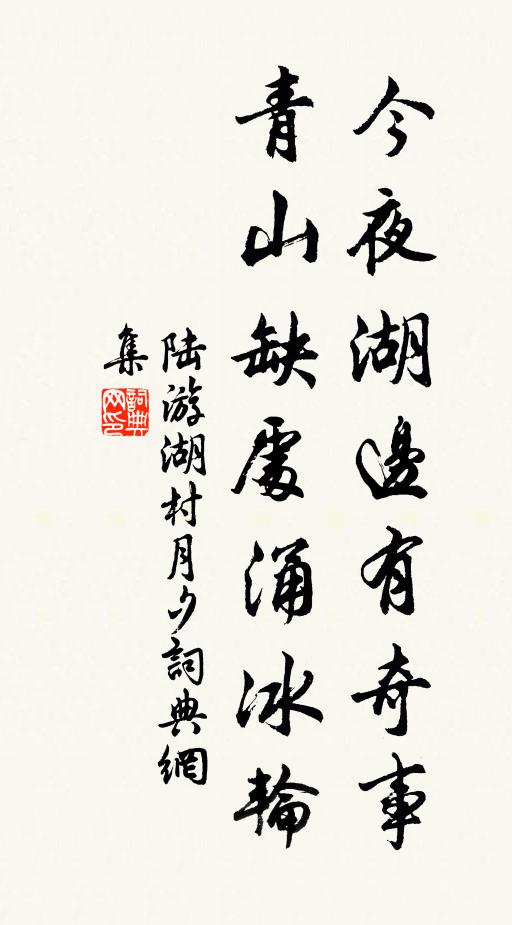 今夜湖邊有奇事
青山缺處涌冰輪
陆游湖村月夕詞典網
集
詞典
网印